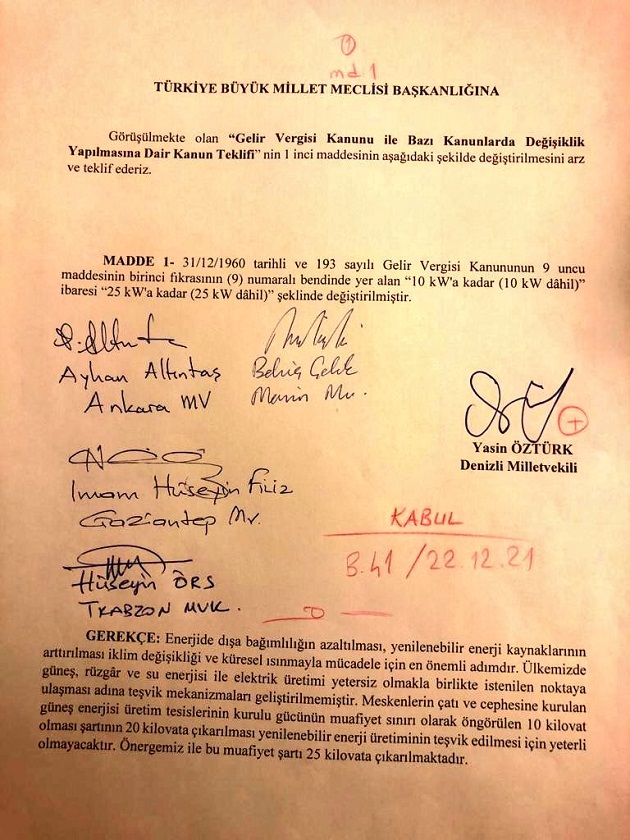 1
md 1
TÜRKİYE BÜYÜK MİLLET MECLİSİ BAŞKANLIĞINA
Görüşülmekte olan “Gelir Vergisi Kanunu ile Bazı Kanunlarda Değişiklik
Yapılmasına Dair Kanun Teklifi” nin 1 inci maddesinin aşağıdaki şekilde değiştirilmesini arz
ve teklif ederiz.
MADDE 1- 31/12/1960 tarihli ve 193 sayılı Gelir Vergisi Kanununun 9 uncu
maddesinin birinci fıkrasının (9) numaralı bendinde yer alan “10 kW'a kadar (10 kW dâhil)”
ibaresi “25 kW'a kadar (25 kW dâhil)” şeklinde değiştirilmiştir.
Ayhan Altıntaş
Ankara MV
Behiç Çelik
Mersin Mv.
Yasin ÖZTÜRK
Denizli Milletvekili
Imam Hüseyin Filiz
Gaziantep Mv.
KABUL
B.41 /22.12.21
Hüseyin ÖRS
TRABZON MVK.
GEREKÇE: Enerjide dışa bağımlılığın azaltılması, yenilenebilir enerji kaynaklarının
arttırılması iklim değişikliği ve küresel ısınmayla mücadele için en önemli adımdır. Ülkemizde
güneş, rüzgâr ve su enerjisi ile elektrik üretimi yetersiz olmakla birlikte istenilen noktaya
ulaşması adına teşvik mekanizmaları geliştirilmemiştir. Meskenlerin çatı ve cephesine kurulan
güneş enerjisi üretim tesislerinin kurulu gücünün muafiyet sınırı olarak öngörülen 10 kilovat
olması şartının 20 kilovata çıkarılması yenilenebilir enerji üretiminin teşvik edilmesi için yeterli
olmayacaktır. Önergemiz ile bu muafiyet şartı 25 kilovata çıkarılmaktadır.